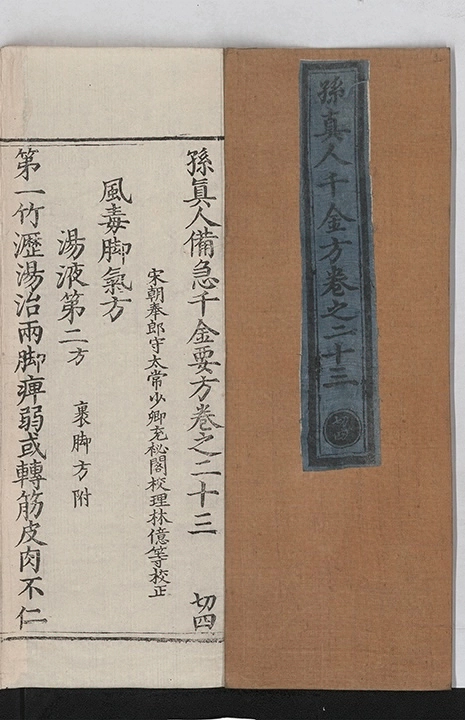 孫真人千金方卷之二十三
切四
孫眞人備急千金要方卷之二十三　切四
宋朝奉郎守太常少卿充祕閣校理林億等校正
風毒脚氣方
湯液第二方　裹脚方附
第一竹瀝湯治兩脚痺弱或轉筋皮肉不仁